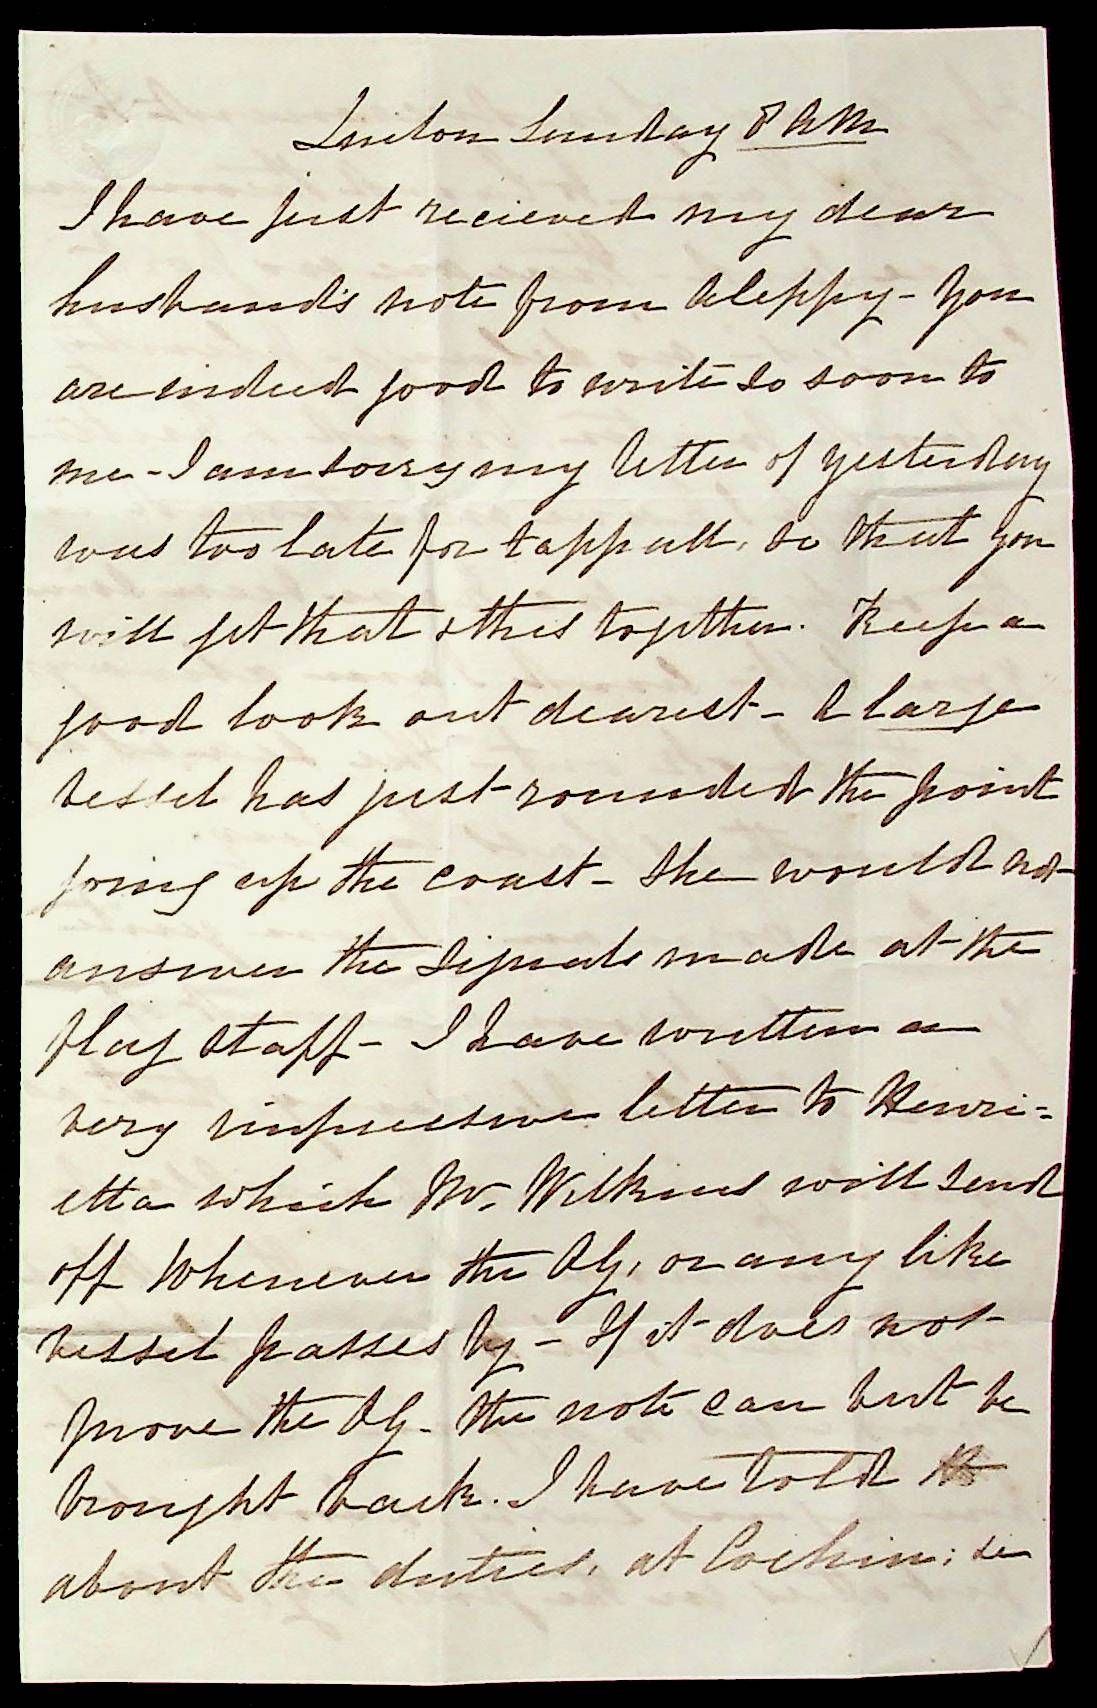 Quilon Sunday 8 AM
I have just recieved my dear
husband's note from Aleppy - You
are indeed good to write so soon to
me - I am sorry my letter of yesterday
was too late for tappall, so that you
will get that & this together. Keep a
good look out dearest - A large
vessel has just rounded the point
going up the coast - She would not
answer the signals made at the
flag staff - I have written a
very impressive letter to Henri=
etta which Mr. Wilkins will send
off whenever the AG, or any like
vessel passes by - If it does not
prove the AG - the note can but be
brought back. I have told
about the duties, at Cochin; so